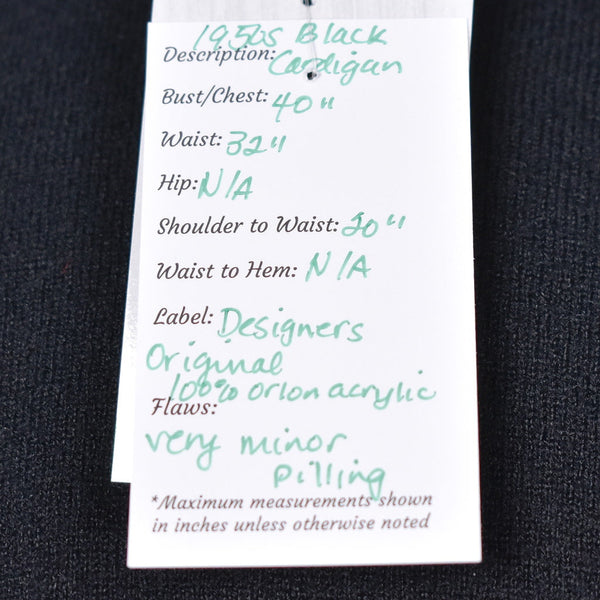 1950s Black
Description: Cardigan
Bust/Chest: 40"
Waist: 32"
Hip: N/A
Shoulder to Waist: 20"
Waist to Hem: N/A
Label: Designers
Original
100% orlon acrylic
Flaws:
very minor
pilling
*Maximum measurements shown
in inches unless otherwise noted